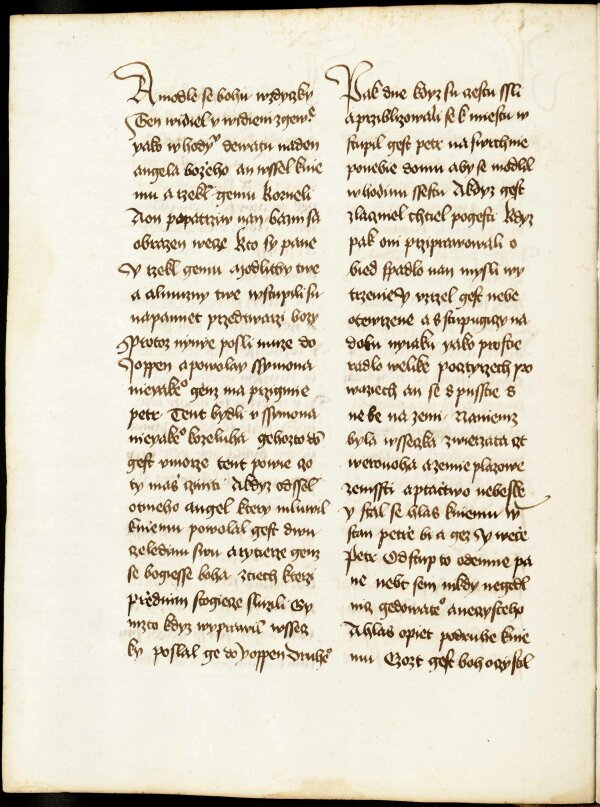 A modle se bohu wzdyczky
Ten widiel v widieni zgewᵉ
yako w hodyᵘ dewatu naden
angela bozeho an wssel knie
mu a rzekl gemu Korneli
Aon popatrziw nan bazni sa
obrazen wece kto sy pane
y rzekl gemu modlitby twe
a almuzny twe wstupili su
napamiet przedtwarzi bozy
Protoz nynye posli muze do
Joppen apowolay ssymona
nieyakeᵒ genz ma przigmie
petr Tent bydli v ssymona
nieyakeᵒ kozeluha gehozto dō
gest vmorze tent powie czo
ty mas cziniti Akdyz odssel
otneho angel ktery mluwil
kniemu powolal gest dwu
czeledinu swu a rytierze genz
se bogiesse boha ztiech kterzi
przednim stogicze sluzili Gy
mzto kdyz wyprawil wssec
ky poslal ge do yoppen druheᵒ
Pak dne kdyz su czestu ssli
a przyblizowali se k miestu w
stupil gest petr na swrchnie
ponebie domu aby se modlil
w hodinu ssestu Akdyz gest
zlacznel chtiel pogesti kdyz
pak oni prziprawowali o
bied spadlo nan mysli wy
trzenie y vzrzel gest nebe
otewrzene a sstupugiczy na
dobu nyaku yako prostie
radlo welike pocztyrzech pro
waziech an se spusstie s
nebe na zemi Naniemz
byla wsseczka zwierzata czt
wernoha a zemie plazowe
zemssti a ptactwo nebeske
y stal se hlas kniemu w
stan petrze bi a gez y wece
Petr Odstup to odemne pa
ne nebt sem nikdy negedl
nicz gedowateᵒ a neczysteho
A hlas opiet podruhe knie
mu Czozt gest boh oczystil